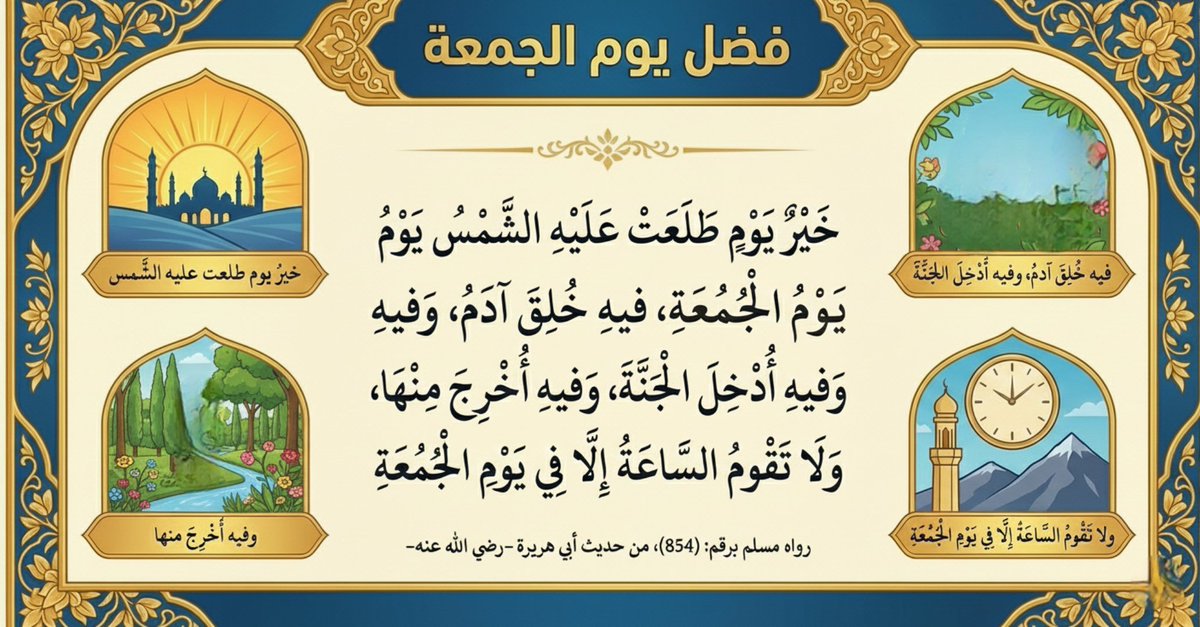 فضل يوم الجمعة
خَيْرٌ يَوْمٍ طَلَعَتْ عَلَيْهِ الشَّمْسُ يَوْمُ
يَوْمُ الْجُمُعَةِ، فيهِ خُلِقَ آدَمُ، وَفيهِ
وَفيهِ أُدْخِلَ الْجَنَّةَ، وَفيهِ أُخْرِجَ مِنْهَا،
وَلَا تَقْومُ السَّاعَةُ إِلَّا فِي يَوْمِ الْجُمُعَةِ
رواه مسلم برقم: (854)، من حديث أبي هريرة –رضي الله عنه–
فيه خُلِقَ آدمُ، وفيه أُدْخِلَ الجَنَّةَ
خيرُ يوم طلعت عليه الشَّمس
ولا تَقُومُ السَّاعَةُ إِلَّا فِي يَوْمِ الْجُمُعَةِ
وفيه أُخْرِجَ منها